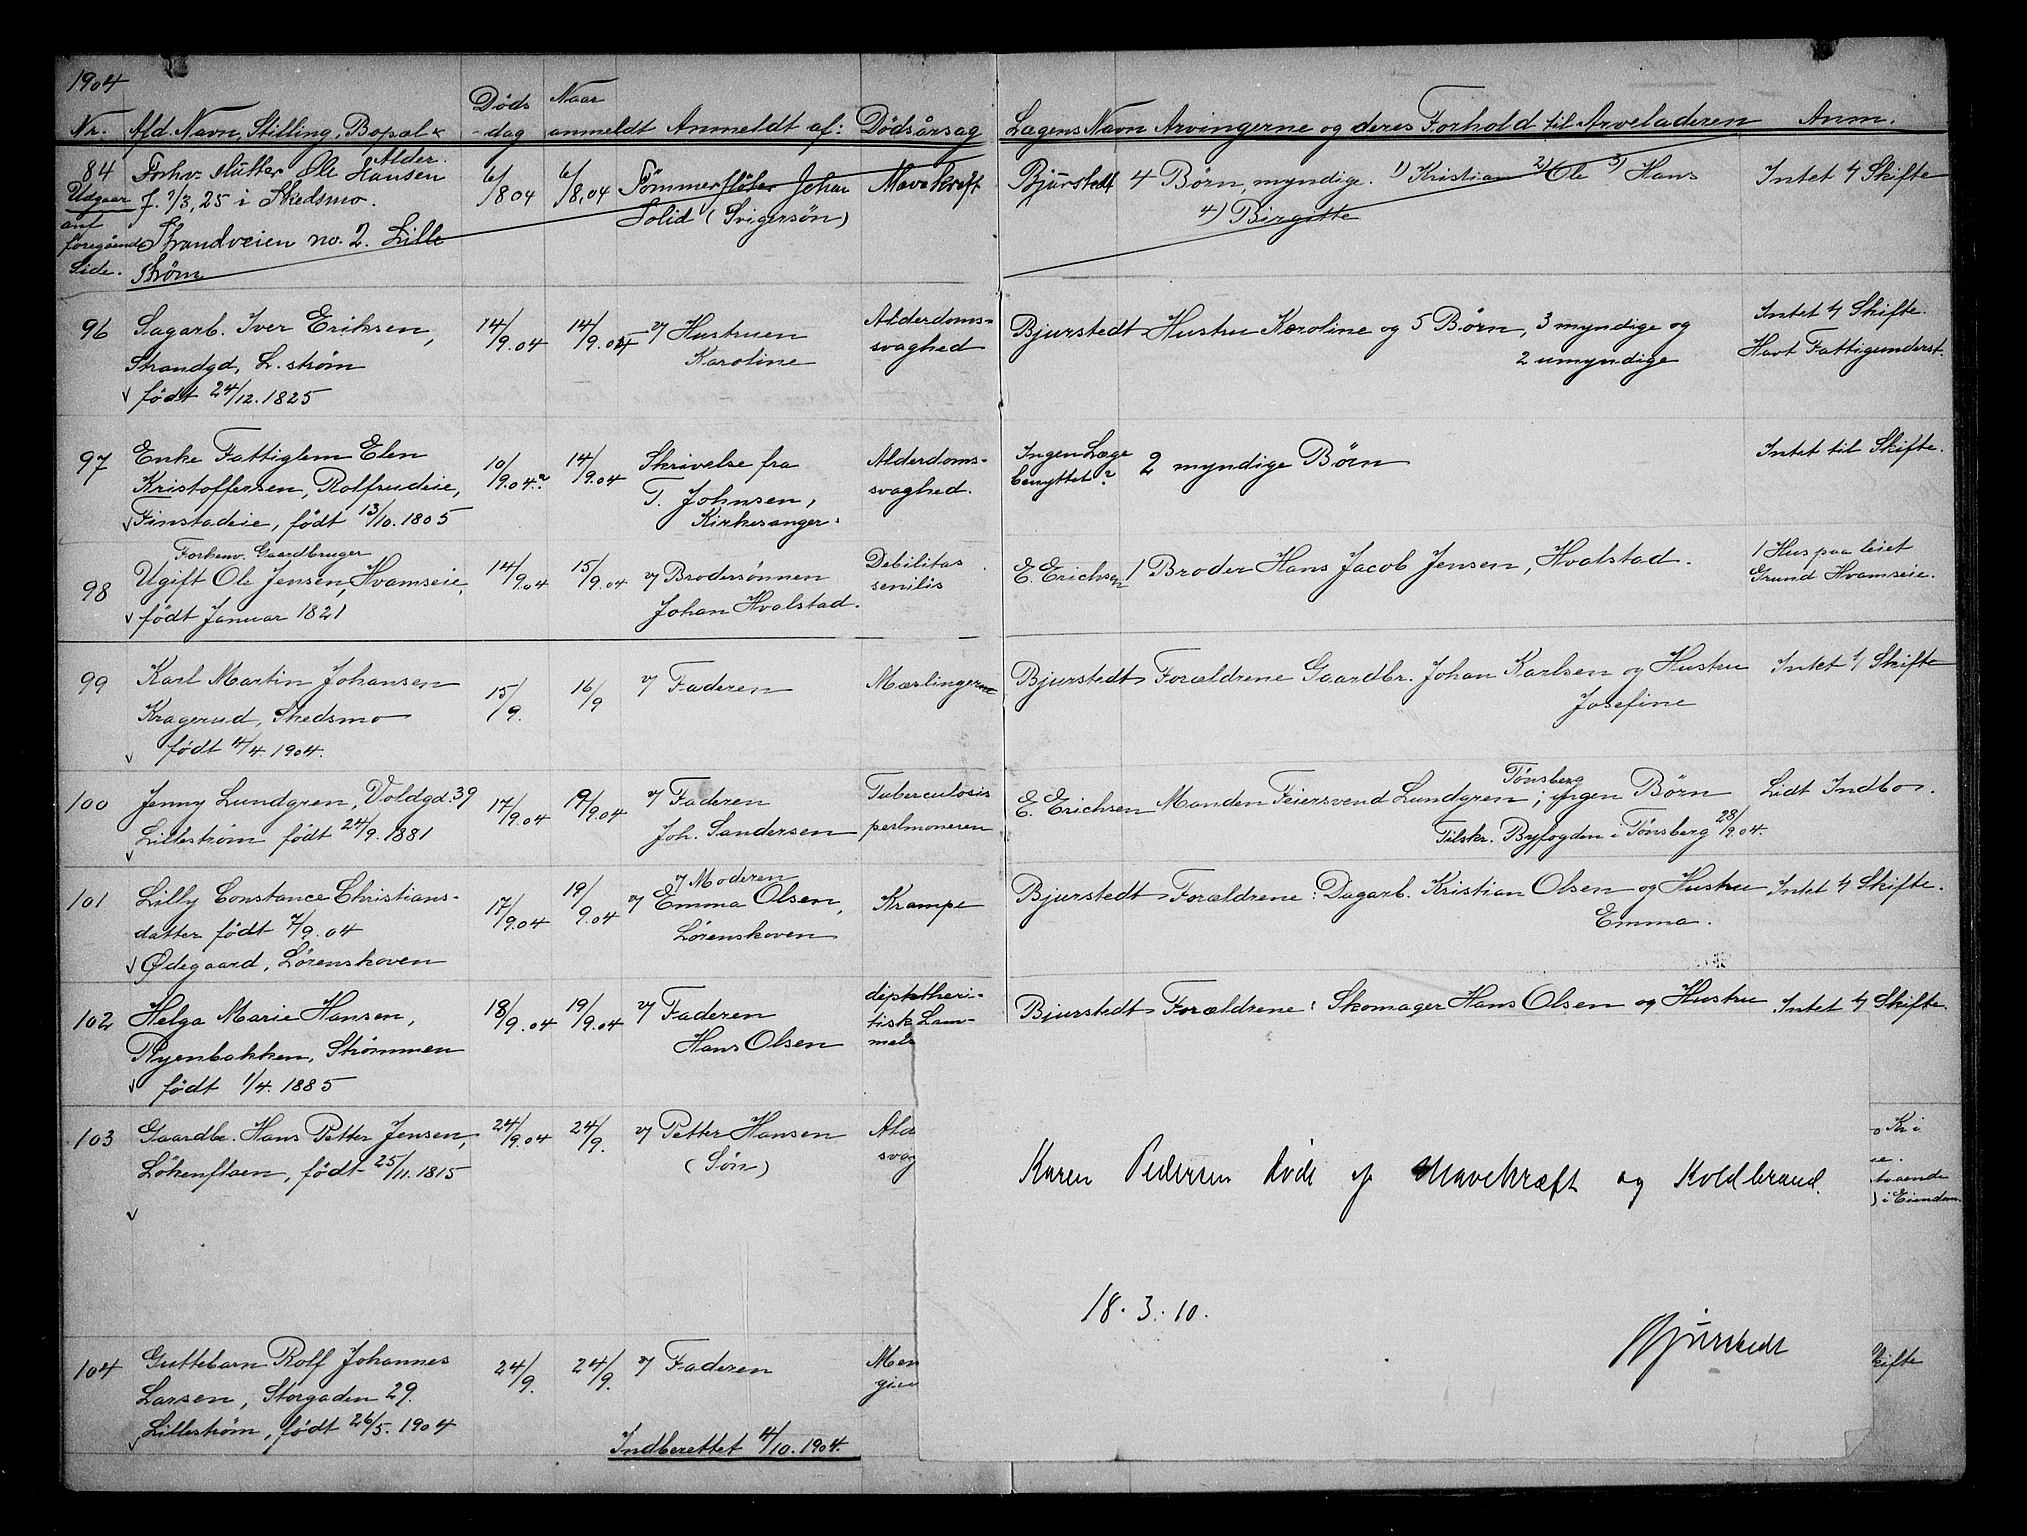 1904
Nr. Afd. Navn, Stilling, Bopæl & Alder. Døds-dag Naar anmeldt Anmeldt af: Dödsårsag Lægens Navn Arvingerne og deres Forhold til Arveladeren Anm.
84 Forhv. Slutter Ole Hansen 6/8 04 6/8.04 Tömmerfløter Johan Mavekreft Bjurstedt 4 Börn, myndige. 1) Kristian 2) Ole 3) Hans Intet t/ Skifte
Udgaar f. 7/3, 25 i Skedsmo. Solid (Svigersøn) 4) Birgitte
anf
foregående Strandveien no. 2. Lille
Side. Strøm
96 Sagarb. Iver Eriksen, 14/9.04 14/9.04 v/ Hustruen Alderdoms- Bjurstedt Hustru Karoline og 5 Børn, 3 myndige og Intet t/ Skifte.
Strandgd, L. strøm Karoline svaghed 2 umyndige Havt Fattigunderst.
født 24/12. 1825
97 Enke Fattiglem Elen 10/9.04? 14/9.04 Skrivelse fra Alderdoms- Ingen Læge 2 myndige Børn Intet til Skifte.
Kristoffersen, Rolfsudeie, T. Johnsen, svaghed. benyttet?
Finstadeie, født 13/10. 1805 Kirkesanger.
Forhenv. Gaardbruger
98 Ugift Ole Jensen, Hvamseie, 14/9.04 15/9.04 v/ Brodersønnen Debilitas E. Erichsen 1 Broder Hans Jacob Jensen, Hvalstad. 1 Hus paa leiet
født Januar 1821 Johan Hvalstad. senilis Grund Hvamseie.
99 Karl Martin Johansen 15/9. 16/9 v/ Faderen Mæslingerne Bjurstedt Forældrene Gaardbr. Johan Karlsen og Hustru Intet t/ Skifte
Kragerud, Skedsmo Josefine
født 4/4. 1904.
100 Jenny Lundgren, Voldgd. 39 17/9.04 19/9.04 v/ Faderen Tuberculosis E. Erichsen Manden Feiersvend Lundgren, Tønsberg; ingen Børn Lidt Indbo.
Lillestrøm født 24/9. 1881 Joh. Sandersen Tilskr. Byfogden i Tønsberg 28/9.04.
101 Lilly Constance Christians- 17/9.04 19/9.04 v/ Moderen Krampe Bjurstedt Forældrene: Dagarb. Kristian Olsen og Hustru Intet t/ Skifte.
datter født 7/9.04 v/ Emma Olsen, Emma.
Ødegaard, Lørenskoven Lørenskoven
102 Helga Marie Hansen, 18/9.04 19/9.04 v/ Faderen diphtheri- Bjurstedt Forældrene: Skomager Hans Olsen og Hustru Intet t/ Skifte.
Ryenbakken, Strømmen Hans Olsen tisk Lam-
født 1/4. 1885 melse
103 Gaardbr. Hans Petter Jensen, 24/9.04 24/9. v/ Petter Hansen Ald
Lökenflaen, født 25/11. 1815 (Søn) svag
Karen Pedersen døde af Mavekræft og Koldbrand.
18. 3. 10.
Bjurstedt
104 Guttebarn Rolf Johannes 24/9. 24/9. v/ Faderen Men Skifte
Larsen, Storgaden 29.
Lillestrøm, født 26/5. 1904
Indberettet 4/10. 1904.